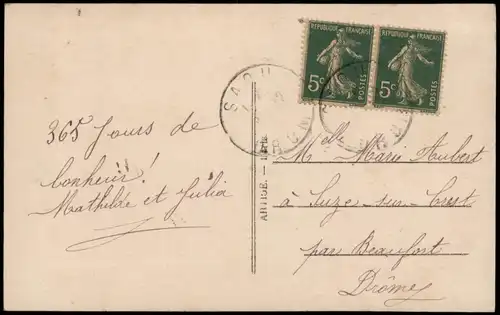 365 Jours de
bonheur !
Mathilde et Julia
REPUBLIQUE FRANÇAISE
5c
POSTES
REPUBLIQUE FRANÇAISE
5c
POSTES
SAOU
Melle Marie Aubert
à Suze-sur-Crest
par Beaufort
Drôme